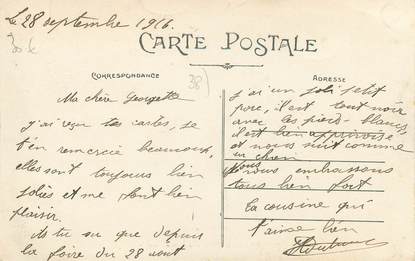 Le 28 septembre 1916.
CARTE POSTALE
CORRESPONDANCE
ADRESSE
38
Ma chère Georgette
j'ai reçu tes cartes, je
t'en remercie beaucoup,
elles sont toujours bien
jolies et me font bien
plaisir.
As tu su que depuis
la foire du 28 août
j'ai un joli petit
porc, il est tout noir
avec les pieds blancs,
il est bien apprivoisé
et nous suit comme
un chien
Nous
nous embrassons
tous bien fort
ta cousine qui
t'aime bien